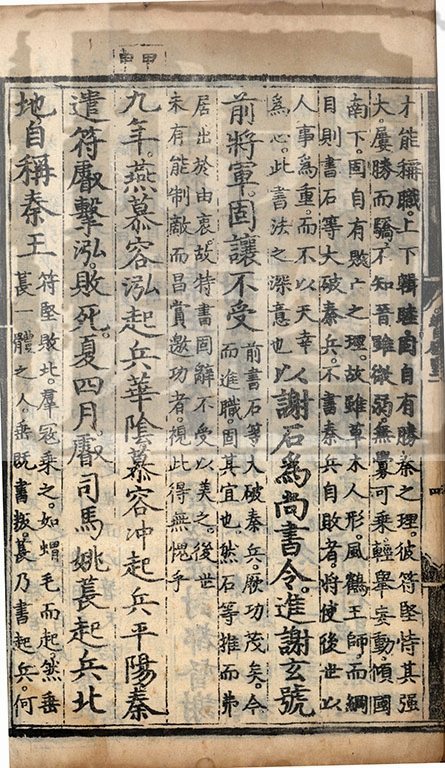 才能稱職。上下輯睦。固自有勝秦之理。彼苻堅恃其強
大。屢勝而驕。不知晉雖微弱無釁可乘。輕舉妄動。傾國
南下。固自有敗亡之理。故雖草木人形。風鶴王師。而綱
目則書石等大破秦兵。不書秦兵自敗者。將使後世以
人事爲重。而不以天幸
爲心。此書法之深意也
以謝石爲尚書令。進謝玄號
前將軍。固讓不受
前書石等大破秦兵。厥功茂矣。今
而進職。固其宜也。然石等推而弗
居出於由衷。故特書固辭不受以美之。後世
未有能制敵而昌賞邀功者。視此得無愧乎
甲申
九年。燕慕容泓起兵華陰慕容沖起兵平陽秦
遣苻叡擊泓。敗死。夏四月。叡司馬姚萇起兵北
地。自稱秦王
苻堅敗北。羣冦乘之。如蝟毛而起。然垂
萇一體之人。垂既書叛。萇乃書起兵。何